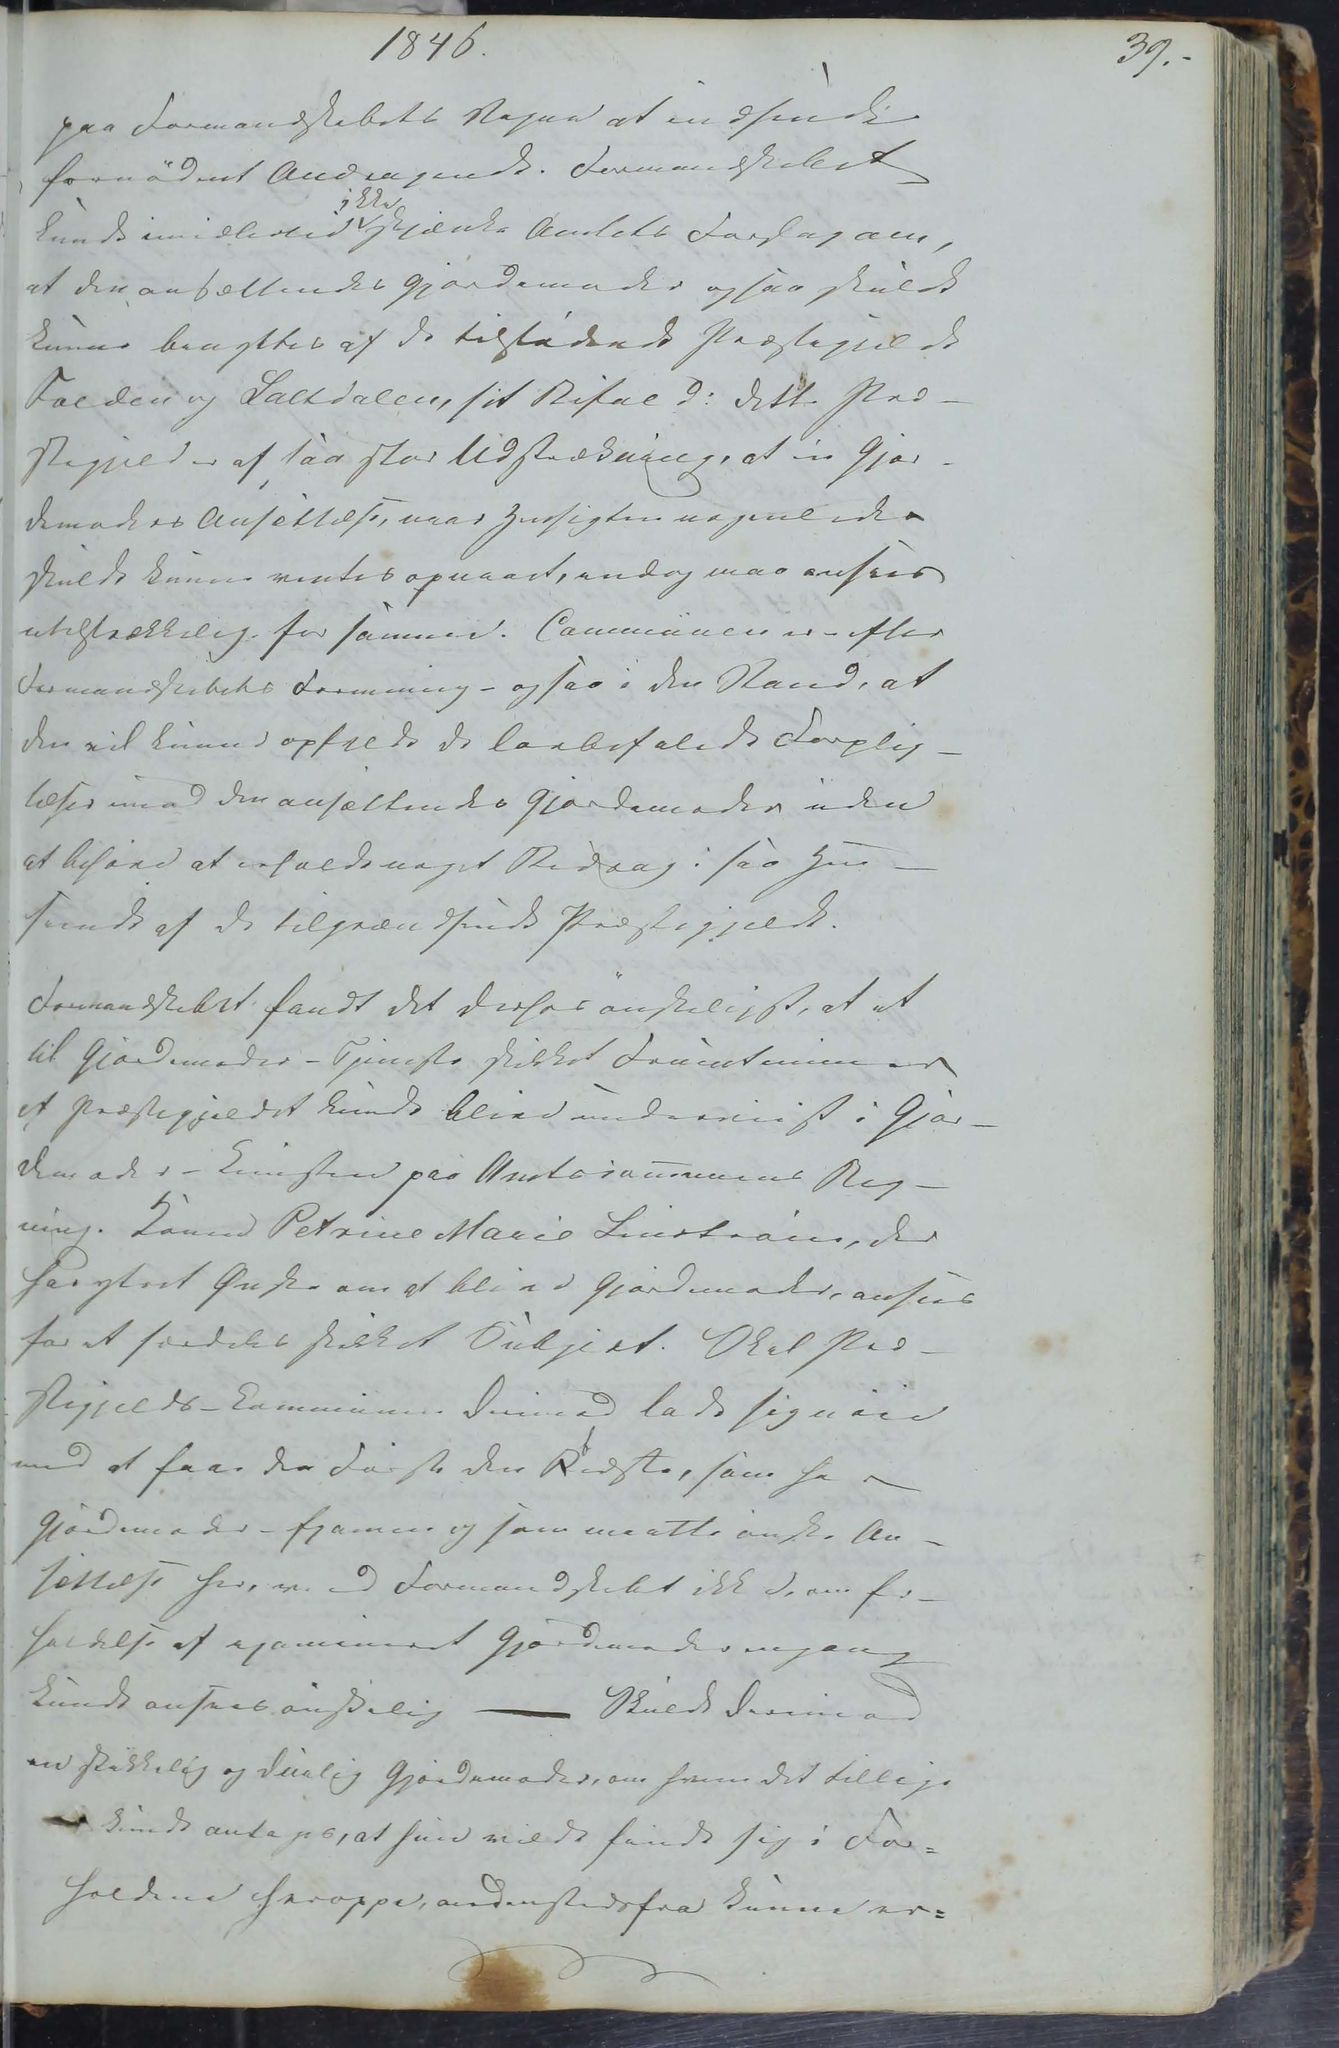 1846.
39.-
paa Formandskabets Vegne at indsende
fornödent Andragende. Formandskabet
kunde imidlertid ikke skjænke Amtets Forslag om,
at den ansættendes Gjordemoder ogsaa skulde
kunne benyttes af de tilstödende Præstegjelde
Folden og Saltdalen, sit Bifald: dette Præ-
stegjeld er af saa stor Udstrækning, at en Gjor-
demoders Ansættelse, naar Hensigten nogenledes
skulde kunne ventes opnaaet, endog maa ansees
utilstrækkelig for samme. Communen er - efter
Formandskabets Formening - ogsaa i den Stand, at
den vil kunne opfylde de lovbefalede Forplig-
telser imod den ansættendes Gjordemoder uden
at behöve at erholde noget Bidrag i saa Hen-
seende af de tilgrændsende Præstegjelde.
Formandskabet fandt det derfor önskeligst, at et
til Gjordemoder-Tjeneste skikket Fruentimmer
af Præstegjeldet kunde blive underviist i Gjor-
demoder-Kunsten paa Amtscommunens Reg-
ning. Petrine Marie Linström, der
har yttret Ønske om at blive Gjordemoder, ansees
for et særdeles skikket Subject. Skal Præ-
stegjelds-Communen derimod lade sig nöie
med at faae den Förste den Bedste, som har
Gjordemoder-Examen og som maatte önske An-
sættelse her, veed Formandskabet ikke, om Er-
holdelse af examineret Gjordemoder engang
kunde ansees önskelig — Skulde derimod
en skikkelig og duelig Gjordemoder, om hvem det tillige
kunde antages, at hun vilde finde sig i For=
holdene heroppe, andenstedsfra kunne er=